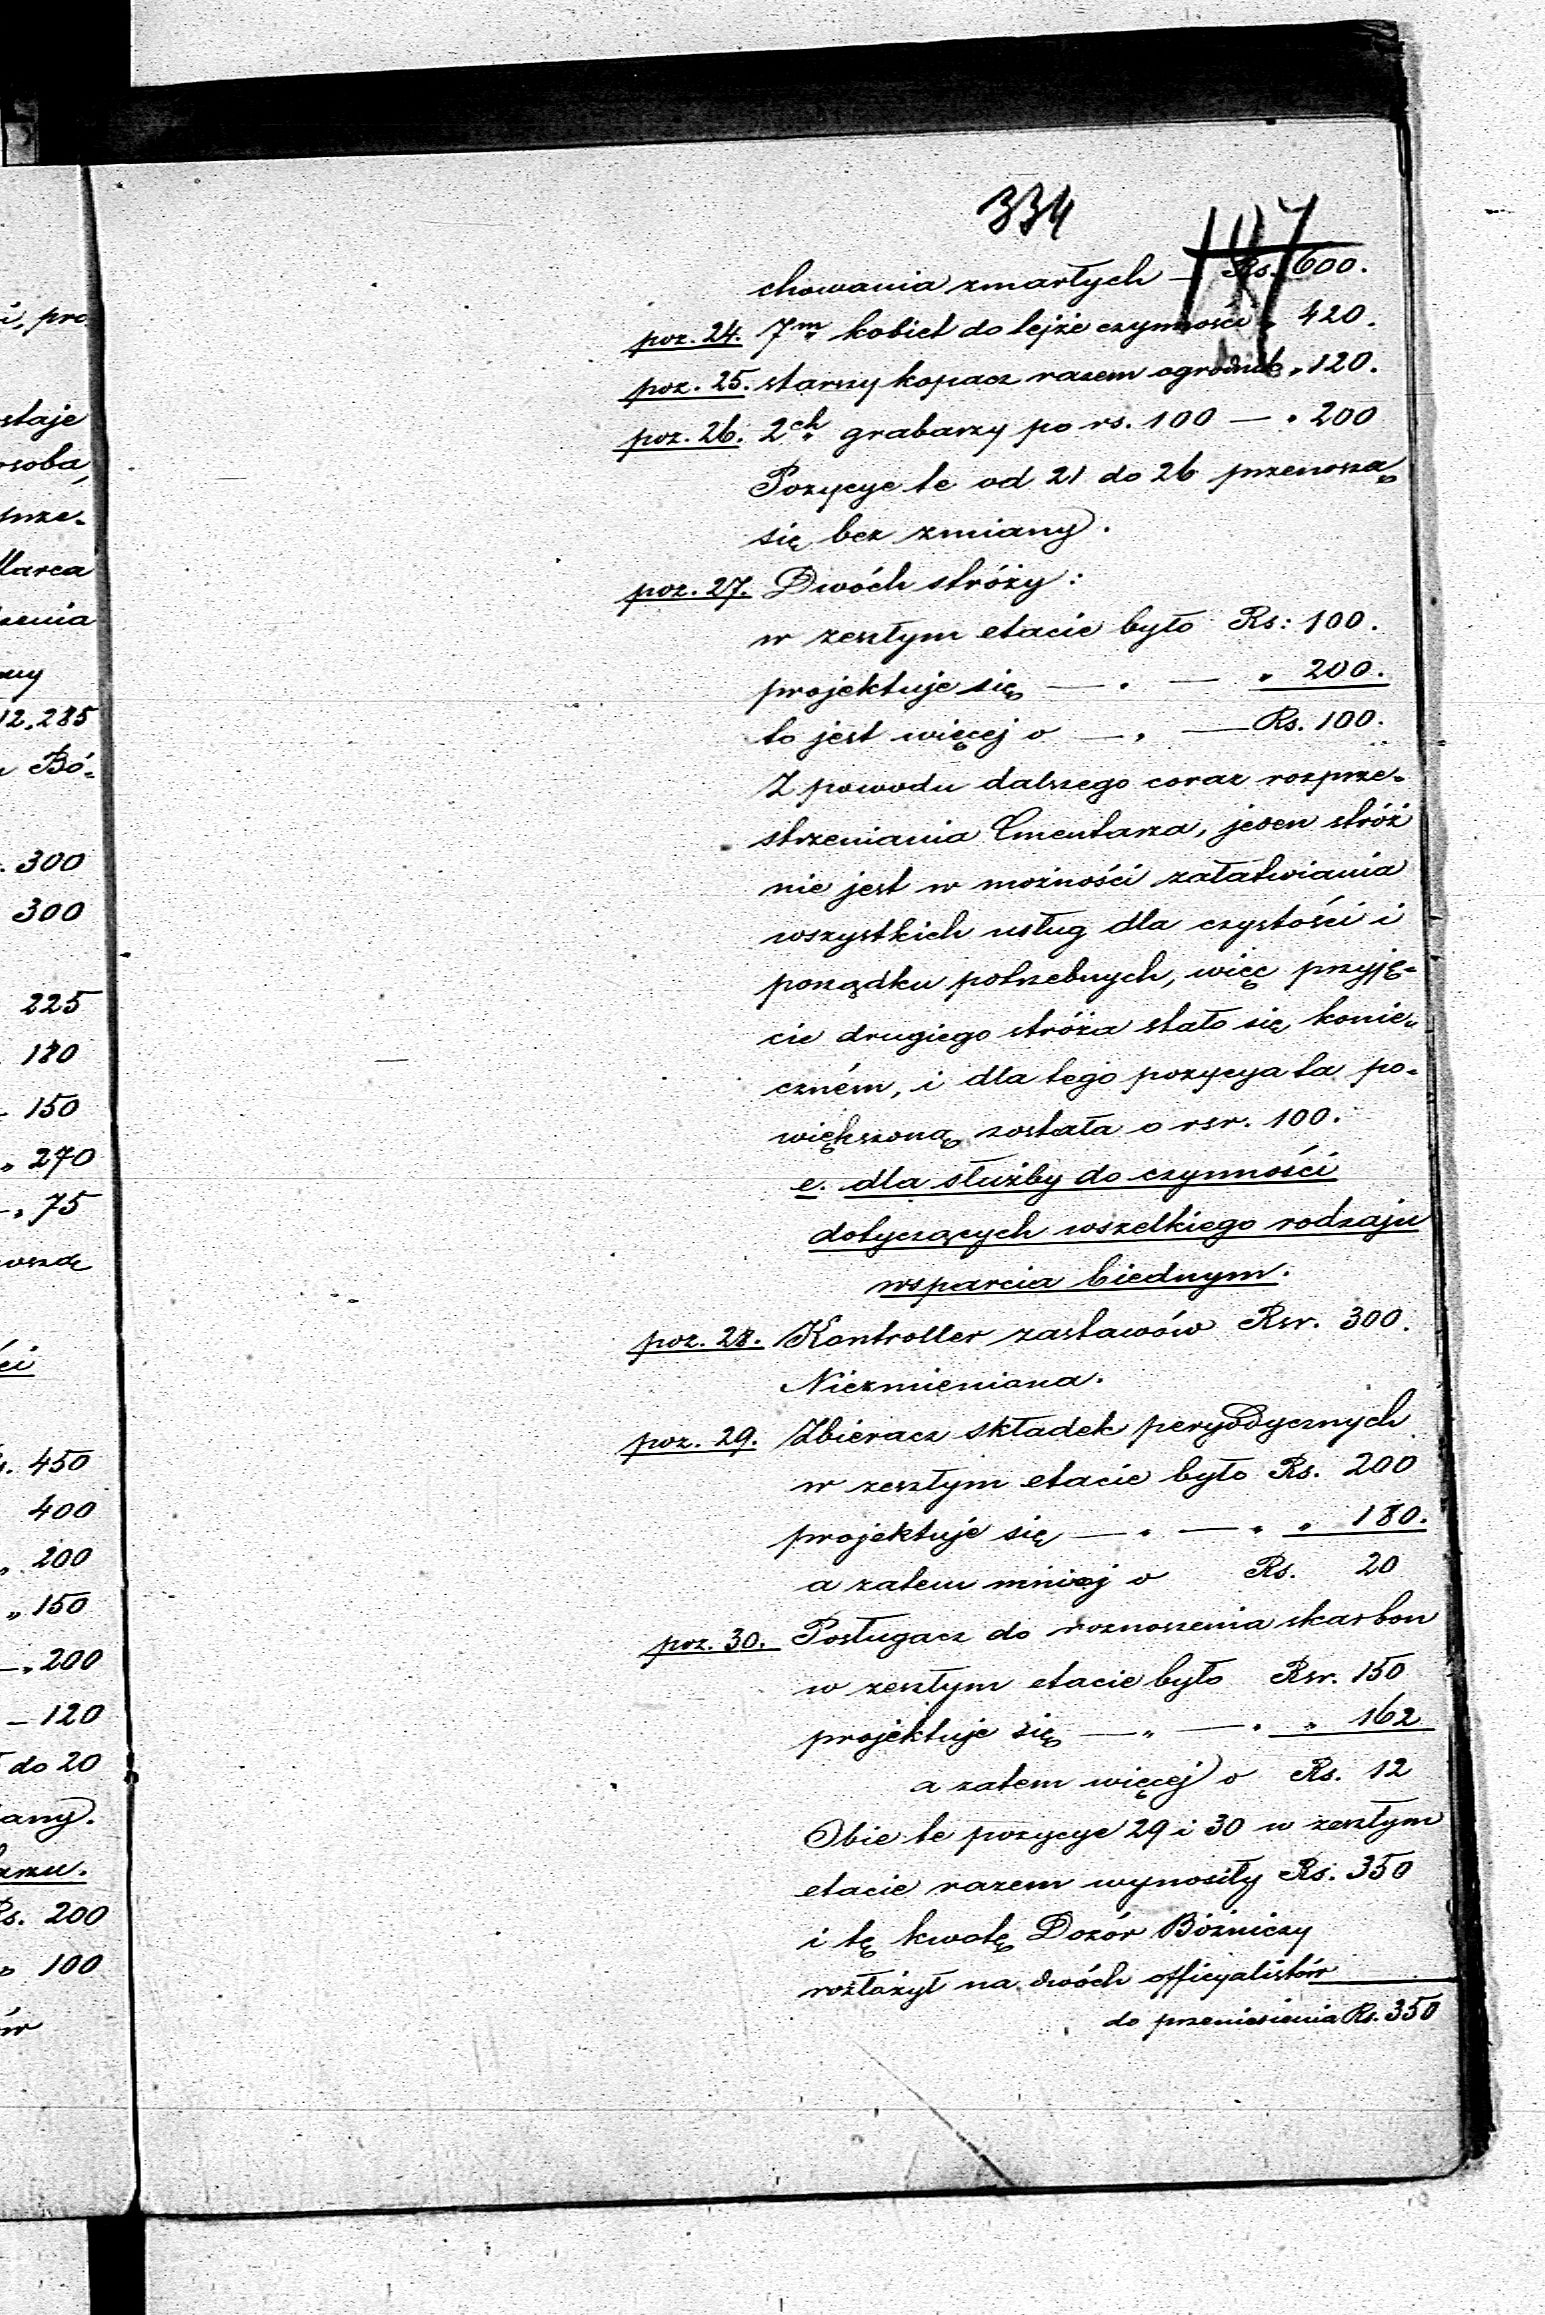 334
chowania zmarłych — Rs. 600.
poz. 24. 7m kobiet do tejże czynności „ 420.
poz. 25. starszy kopacz razem ogrodnik „ 120.
poz. 26. 2ch grabarzy po rs. 100 — „ 200
Pozycye te od 21 do 26 przenoszą
się bez zmiany.
poz. 27. Dwóch stróży:
w zeszłym etacie było Rs: 100.
projektuje się — „ — „ 200.
to jest więcej o — „ — Rs. 100.
Z powodu dalszego coraz rozprze-
strzeniania Cmentarza, jeden stróż
nie jest w możności załatwiania
wszystkich usług dla czystości i
porządku potrzebnych, więc przyję-
cie drugiego stróża stało się konie-
czném, i dla tego pozycya ta po-
większoną została o rsr. 100.
e. dla służby do czynności
dotyczących wszelkiego rodzaju
wsparcia biednym.
poz. 28. Kontroller zastawów Rsr. 300.
Niezmieniona.
poz. 29. Zbieracz składek peryodycznych
w zeszłym etacie było Rs. 200
projektuje się — „ — „ „ 180.
a zatem mniej o Rs. 20
poz. 30. Posługacz do roznoszenia skarbon
w zeszłym etacie było Rsr. 150
projektuje się — „ — „ „ 162
a zatem więcej o Rs. 12
Obie te pozycye 29 i 30 w zeszłym
etacie razem wynosiły Rs. 350
i tę kwotę Dozór Bóżniczy
rozłożył na dwóch officyalistów
do przeniesienia Rs. 350
i, pro
staje
osoba,
prze-
Marca
12,285
Bó-
300
300
225
180
150
„ 270
„ 75
ści
450
400
„ 200
„ 150
— „ 200
— 120
do 20
any.
Rs. 200
„ 100